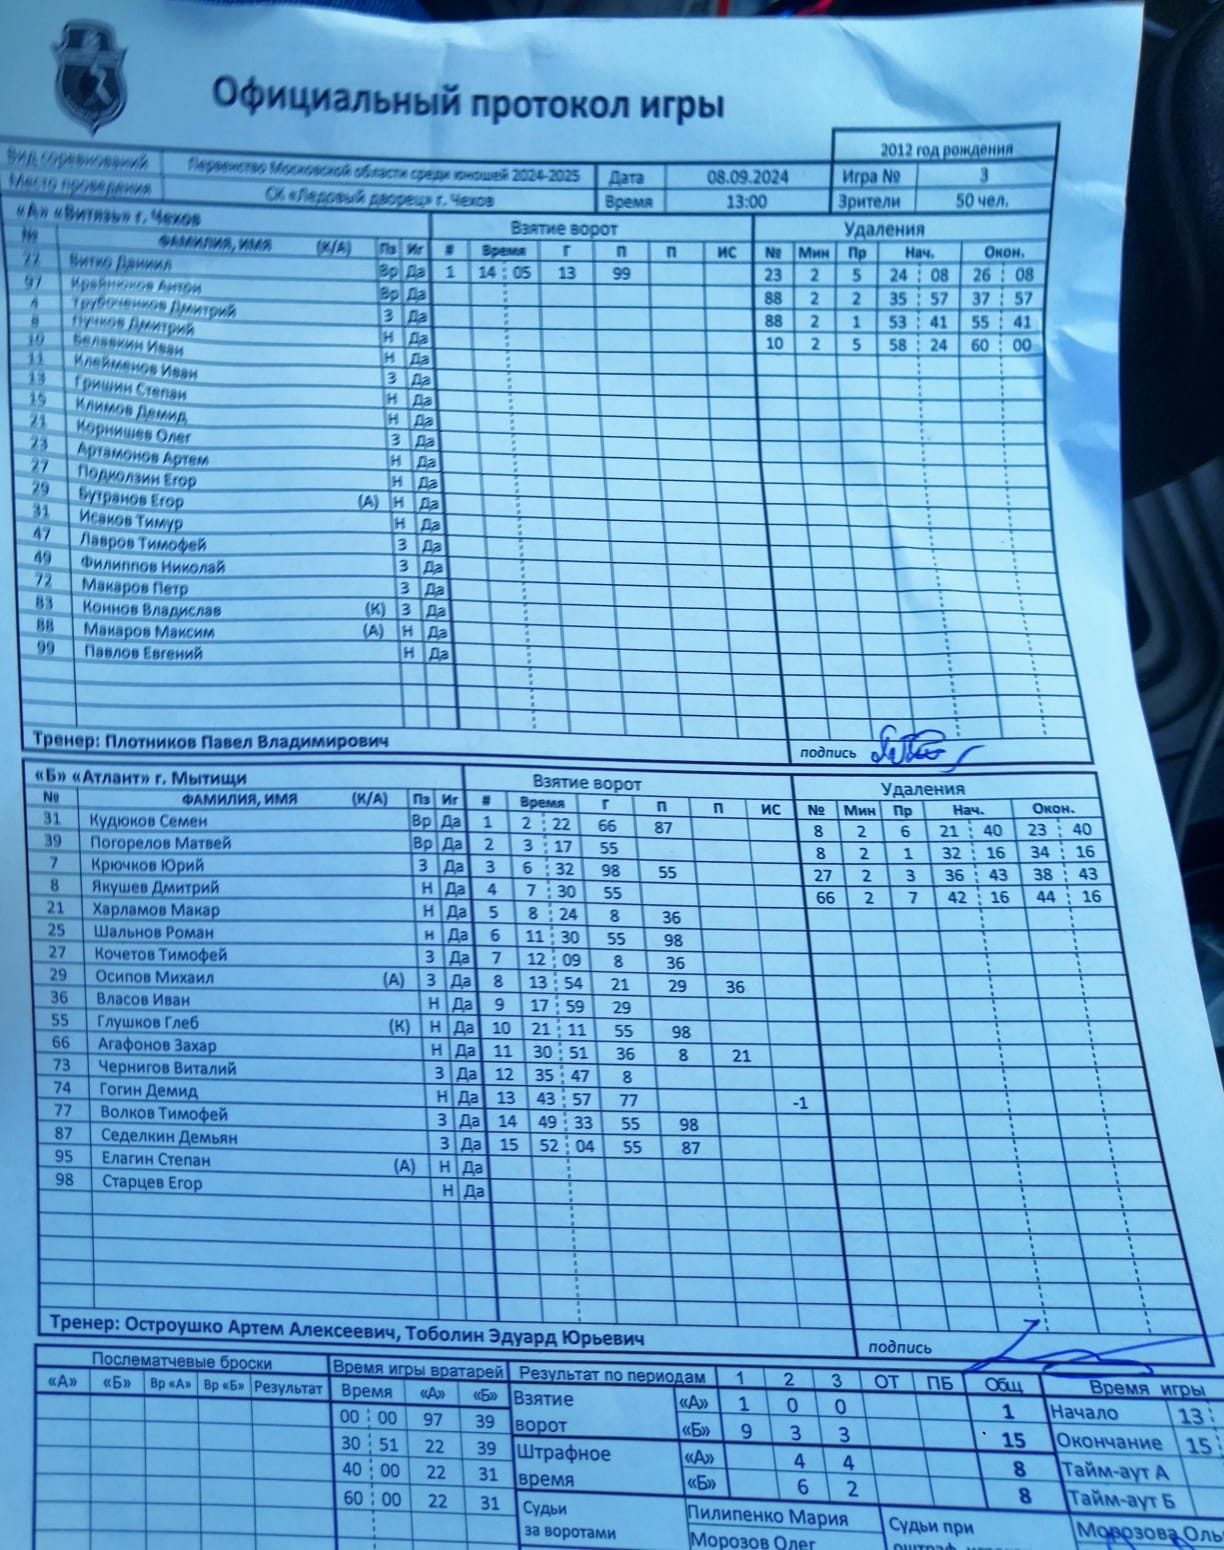 Официальный протокол игры
2012 год рождения
Вид соревнований Первенство Московской области среди юношей 2024-2025 Дата 08.09.2024 Игра № 3
Место проведения СК «Ледовый дворец» г. Чехов Время 13:00 Зрители 50 чел.
«А» «Витязь» г. Чехов Взятие ворот Удаления
№ ФАМИЛИЯ, ИМЯ (К/А) Пз Иг # Время Г П П ИС № Мин Пр Нач. Окон.
22 Витко Даниил Вр Да 1 14 05 13 99 23 2 5 24 08 26 08
97 Крайнюков Антон Вр Да 88 2 2 35 57 37 57
4 Трубоченков Дмитрий З Да 88 2 1 53 41 55 41
8 Пучков Дмитрий Н Да 10 2 5 58 24 60 00
10 Белявкин Иван Н Да
11 Клейменов Иван З Да
13 Гришин Степан Н Да
15 Климов Демид Н Да
21 Корнишев Олег З Да
23 Артамонов Артем Н Да
27 Подколзин Егор Н Да
29 Бутранов Егор (А) Н Да
31 Исаков Тимур Н Да
47 Лавров Тимофей З Да
49 Филиппов Николай З Да
72 Макаров Петр З Да
83 Коннов Владислав (К) З Да
88 Макаров Максим (А) Н Да
99 Павлов Евгений Н Да
Тренер: Плотников Павел Владимирович подпись
«Б» «Атлант» г. Мытищи Взятие ворот Удаления
№ ФАМИЛИЯ, ИМЯ (К/А) Пз Иг # Время Г П П ИС № Мин Пр Нач. Окон.
31 Кудюков Семен Вр Да 1 2 22 66 87 8 2 6 21 40 23 40
39 Погорелов Матвей Вр Да 2 3 17 55 8 2 1 32 16 34 16
7 Крючков Юрий З Да 3 6 32 98 55 27 2 3 36 43 38 43
8 Якушев Дмитрий Н Да 4 7 30 55 66 2 7 42 16 44 16
21 Харламов Макар Н Да 5 8 24 8 36
25 Шальнов Роман н Да 6 11 30 55 98
27 Кочетов Тимофей З Да 7 12 09 8 36
29 Осипов Михаил (А) З Да 8 13 54 21 29 36
36 Власов Иван Н Да 9 17 59 29
55 Глушков Глеб (К) Н Да 10 21 11 55 98
66 Агафонов Захар Н Да 11 30 51 36 8 21
73 Чернигов Виталий З Да 12 35 47 8
74 Гогин Демид Н Да 13 43 57 77 -1
77 Волков Тимофей З Да 14 49 33 55 98
87 Седелкин Демьян З Да 15 52 04 55 87
95 Елагин Степан (А) Н Да
98 Старцев Егор Н Да
Тренер: Остроушко Артем Алексеевич, Тоболин Эдуард Юрьевич подпись
Послематчевые броски Время игры вратарей Результат по периодам 1 2 3 ОТ ПБ Общ Время игры
«А» «Б» Вр «А» Вр «Б» Результат Время «А» «Б» Взятие ворот «А» 1 0 0 1 Начало 13 :
00 00 97 39 «Б» 9 3 3 15 Окончание 15 :
30 51 22 39 Штрафное время «А» 4 4 8 Тайм-аут А
40 00 22 31 «Б» 6 2 8 Тайм-аут Б
60 00 22 31 Судьи за воротами Пилипенко Мария Судьи при Морозова
Морозов Олег